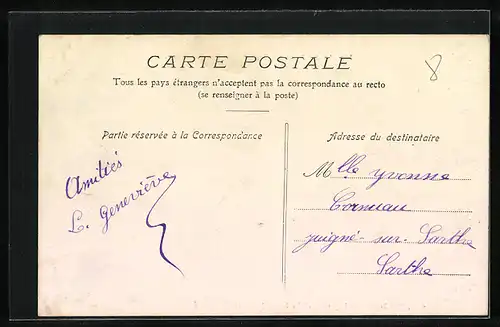 CARTE POSTALE
8
Tous les pays étrangers n'acceptent pas la correspondance au recto
(se renseigner à la poste)
Partie réservée à la Correspondance
Adresse du destinataire
Amitiés
L. Geneviève
Mlle Yvonne
Cormeau
juigné-sur-Sarthe
Sarthe